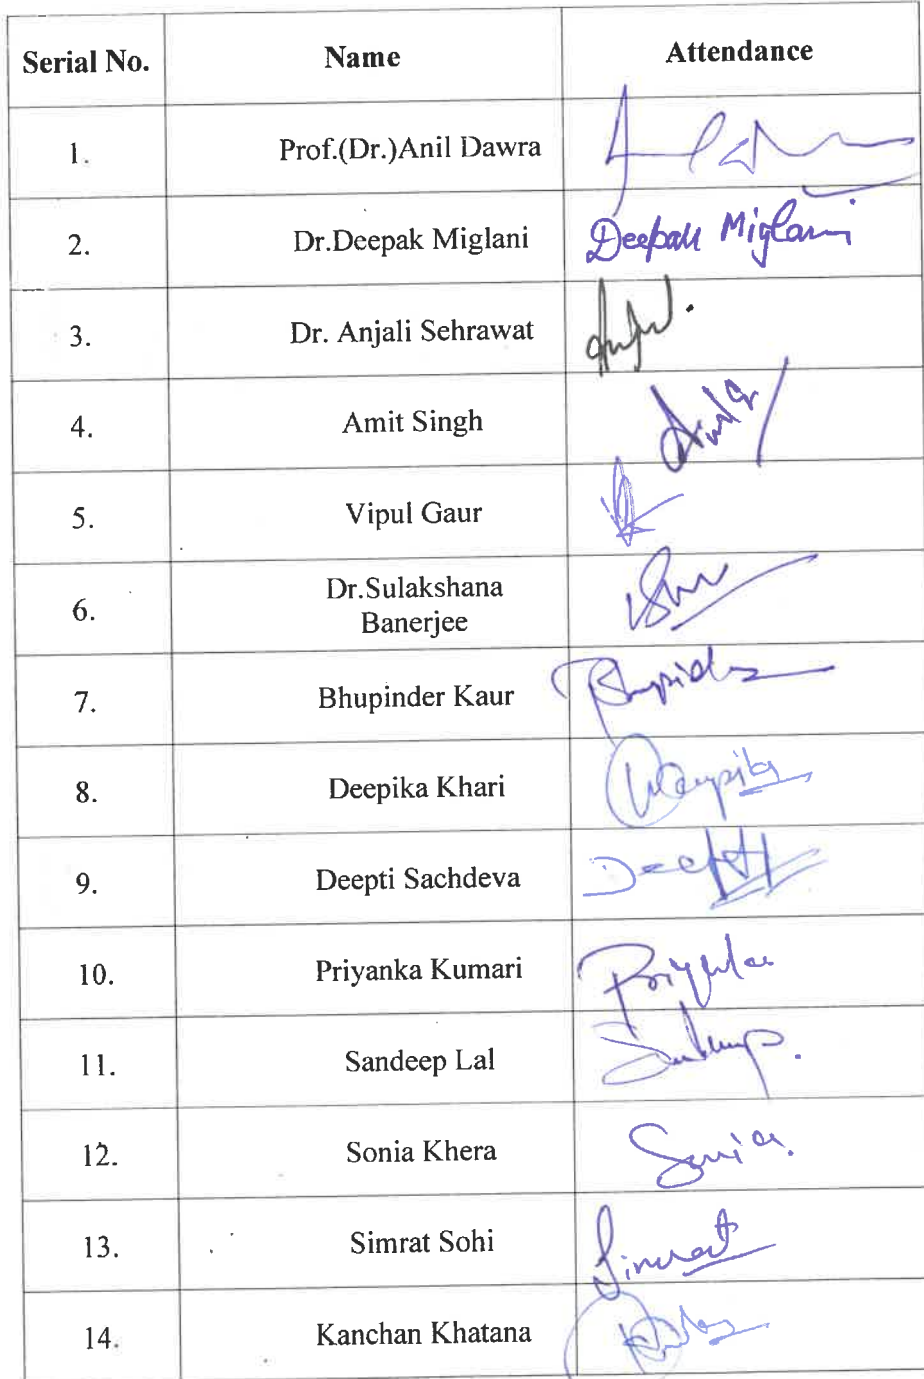 Serial No. Name Attendance
1. Prof.(Dr.)Anil Dawra
2. Dr.Deepak Miglani Deepak Miglani
3. Dr. Anjali Sehrawat
4. Amit Singh
5. Vipul Gaur
6. Dr.Sulakshana
Banerjee
7. Bhupinder Kaur
8. Deepika Khari
9. Deepti Sachdeva
10. Priyanka Kumari
11. Sandeep Lal
12. Sonia Khera Sonia
13. Simrat Sohi Simrat
14. Kanchan Khatana